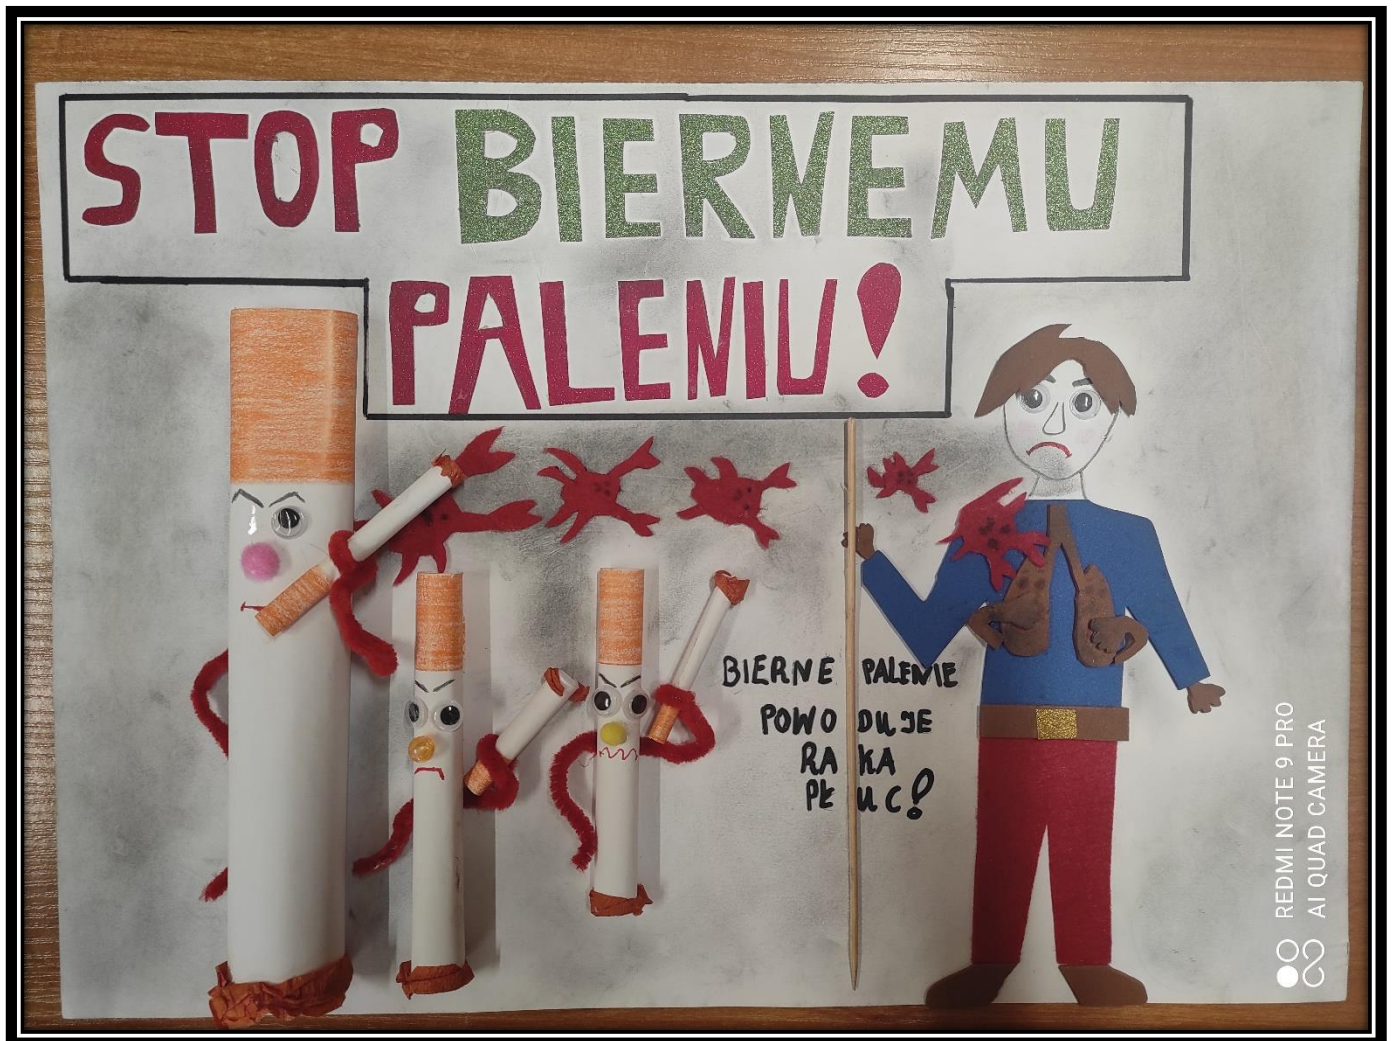 STOP BIERNEMU
PALENIU!
BIERNE PALENIE
POWODUJE
RAKA
PŁUC!
REDMI NOTE 9 PRO
AI QUAD CAMERA